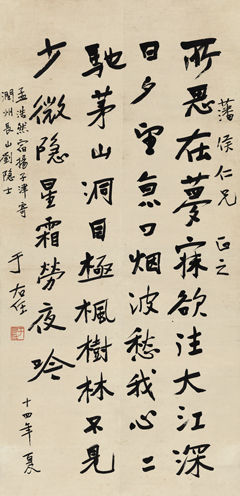 藩侯仁兄 正之
所思在夢寐欲往大江深
日夕望京口烟波愁我心二
馳茅山洞目極楓樹林不見
少微隐星霜勞夜吟
孟浩然宿揚子津寄
潤州長山劉隱士
于右任
十四年夏